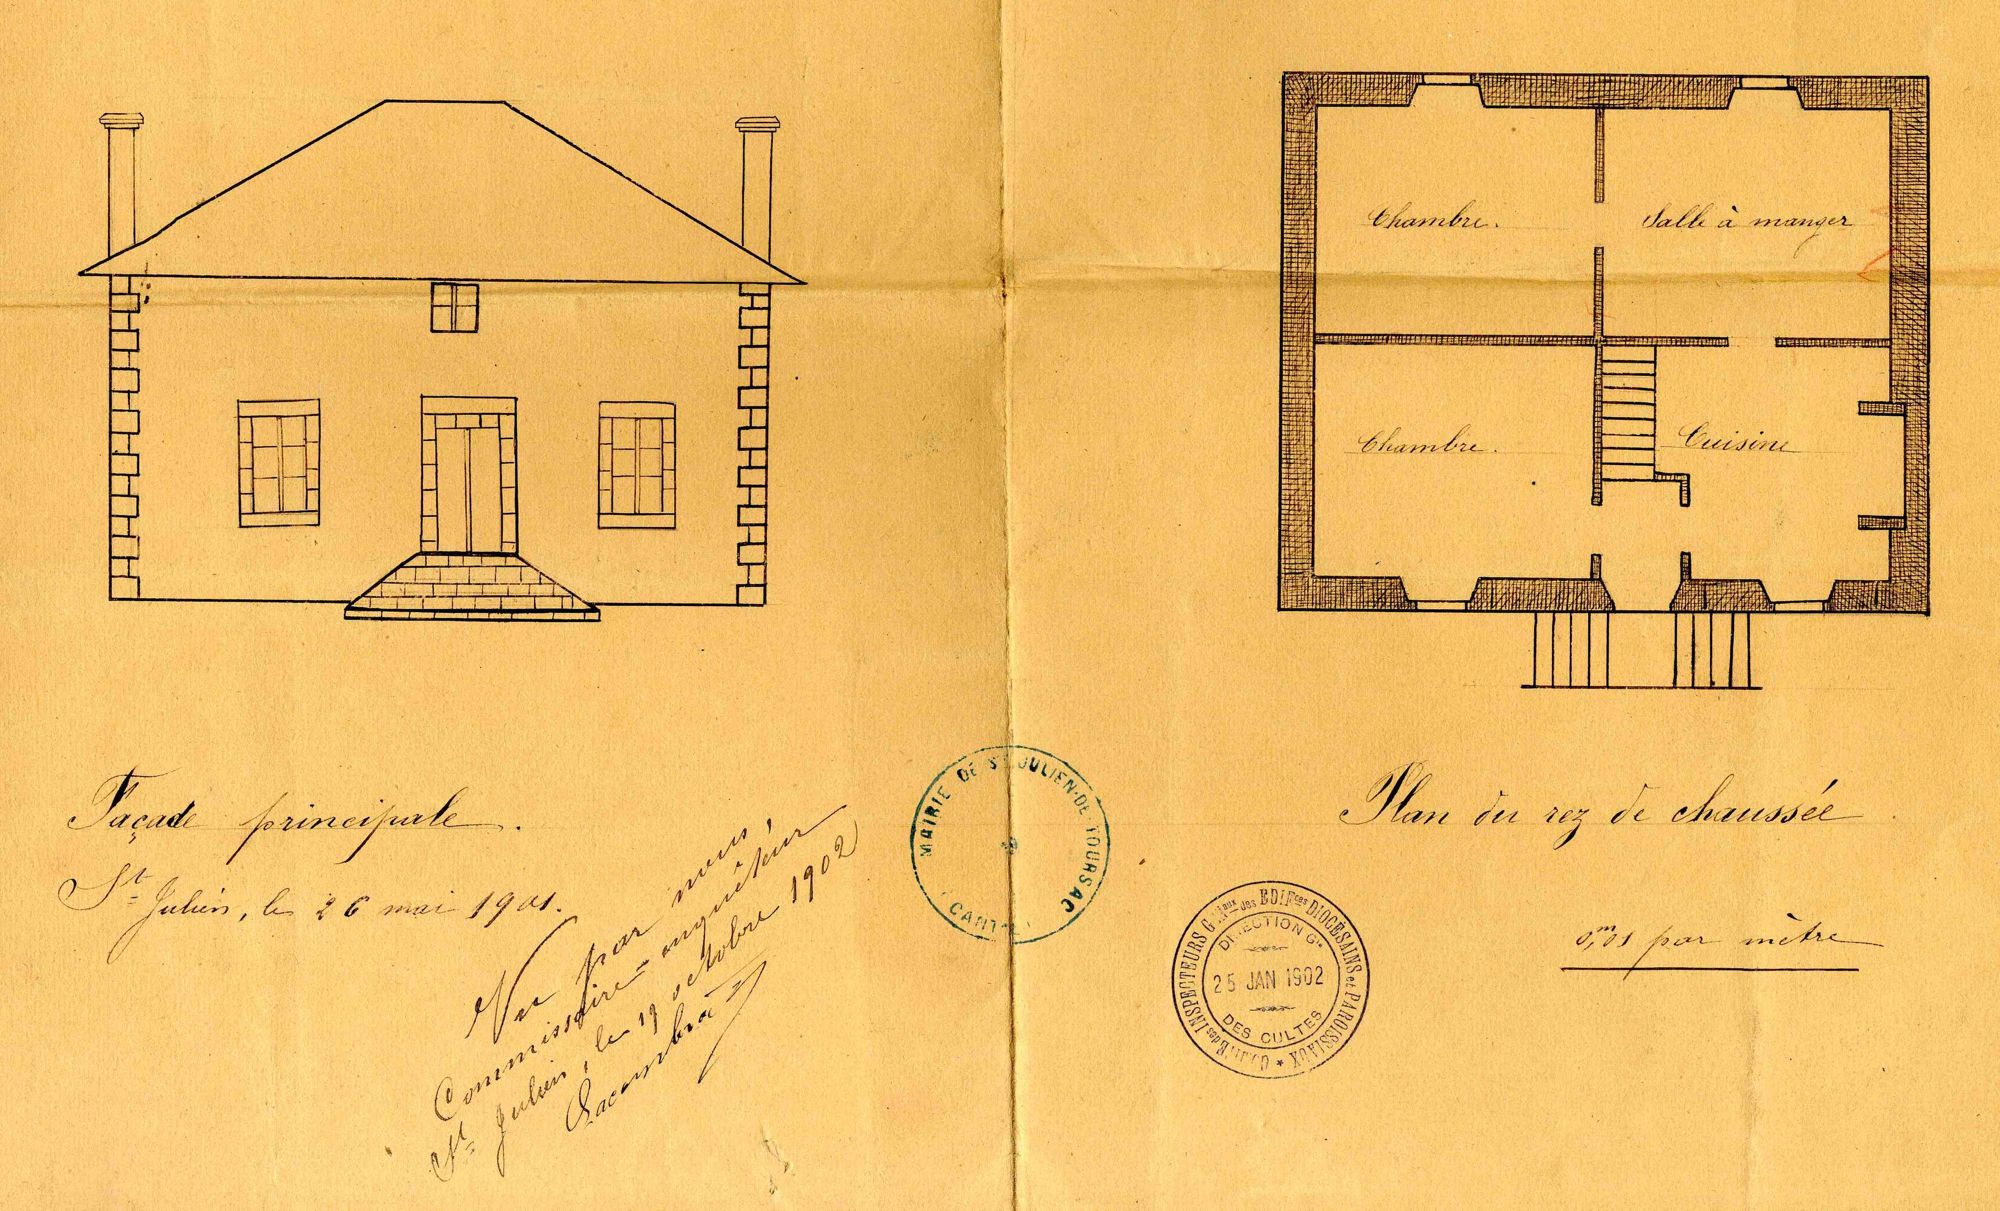 Chambre.
Salle à manger
Chambre.
Cuisine
Façade principale.
St Julien, le 26 mai 1901.
Vu par nous,
Commissaire-enquêteur
St Julien, le 19 octobre 1902
MAIRIE DE ST JULIEN-DE TOURSAC
Plan du rez de chaussée
0,m01 par mètre
INSPECTEURS GNaux des EDIFces DIOCÉSAINS et PAROISSIAUX
DIRECTION Gle
25 JAN 1902
DES CULTES